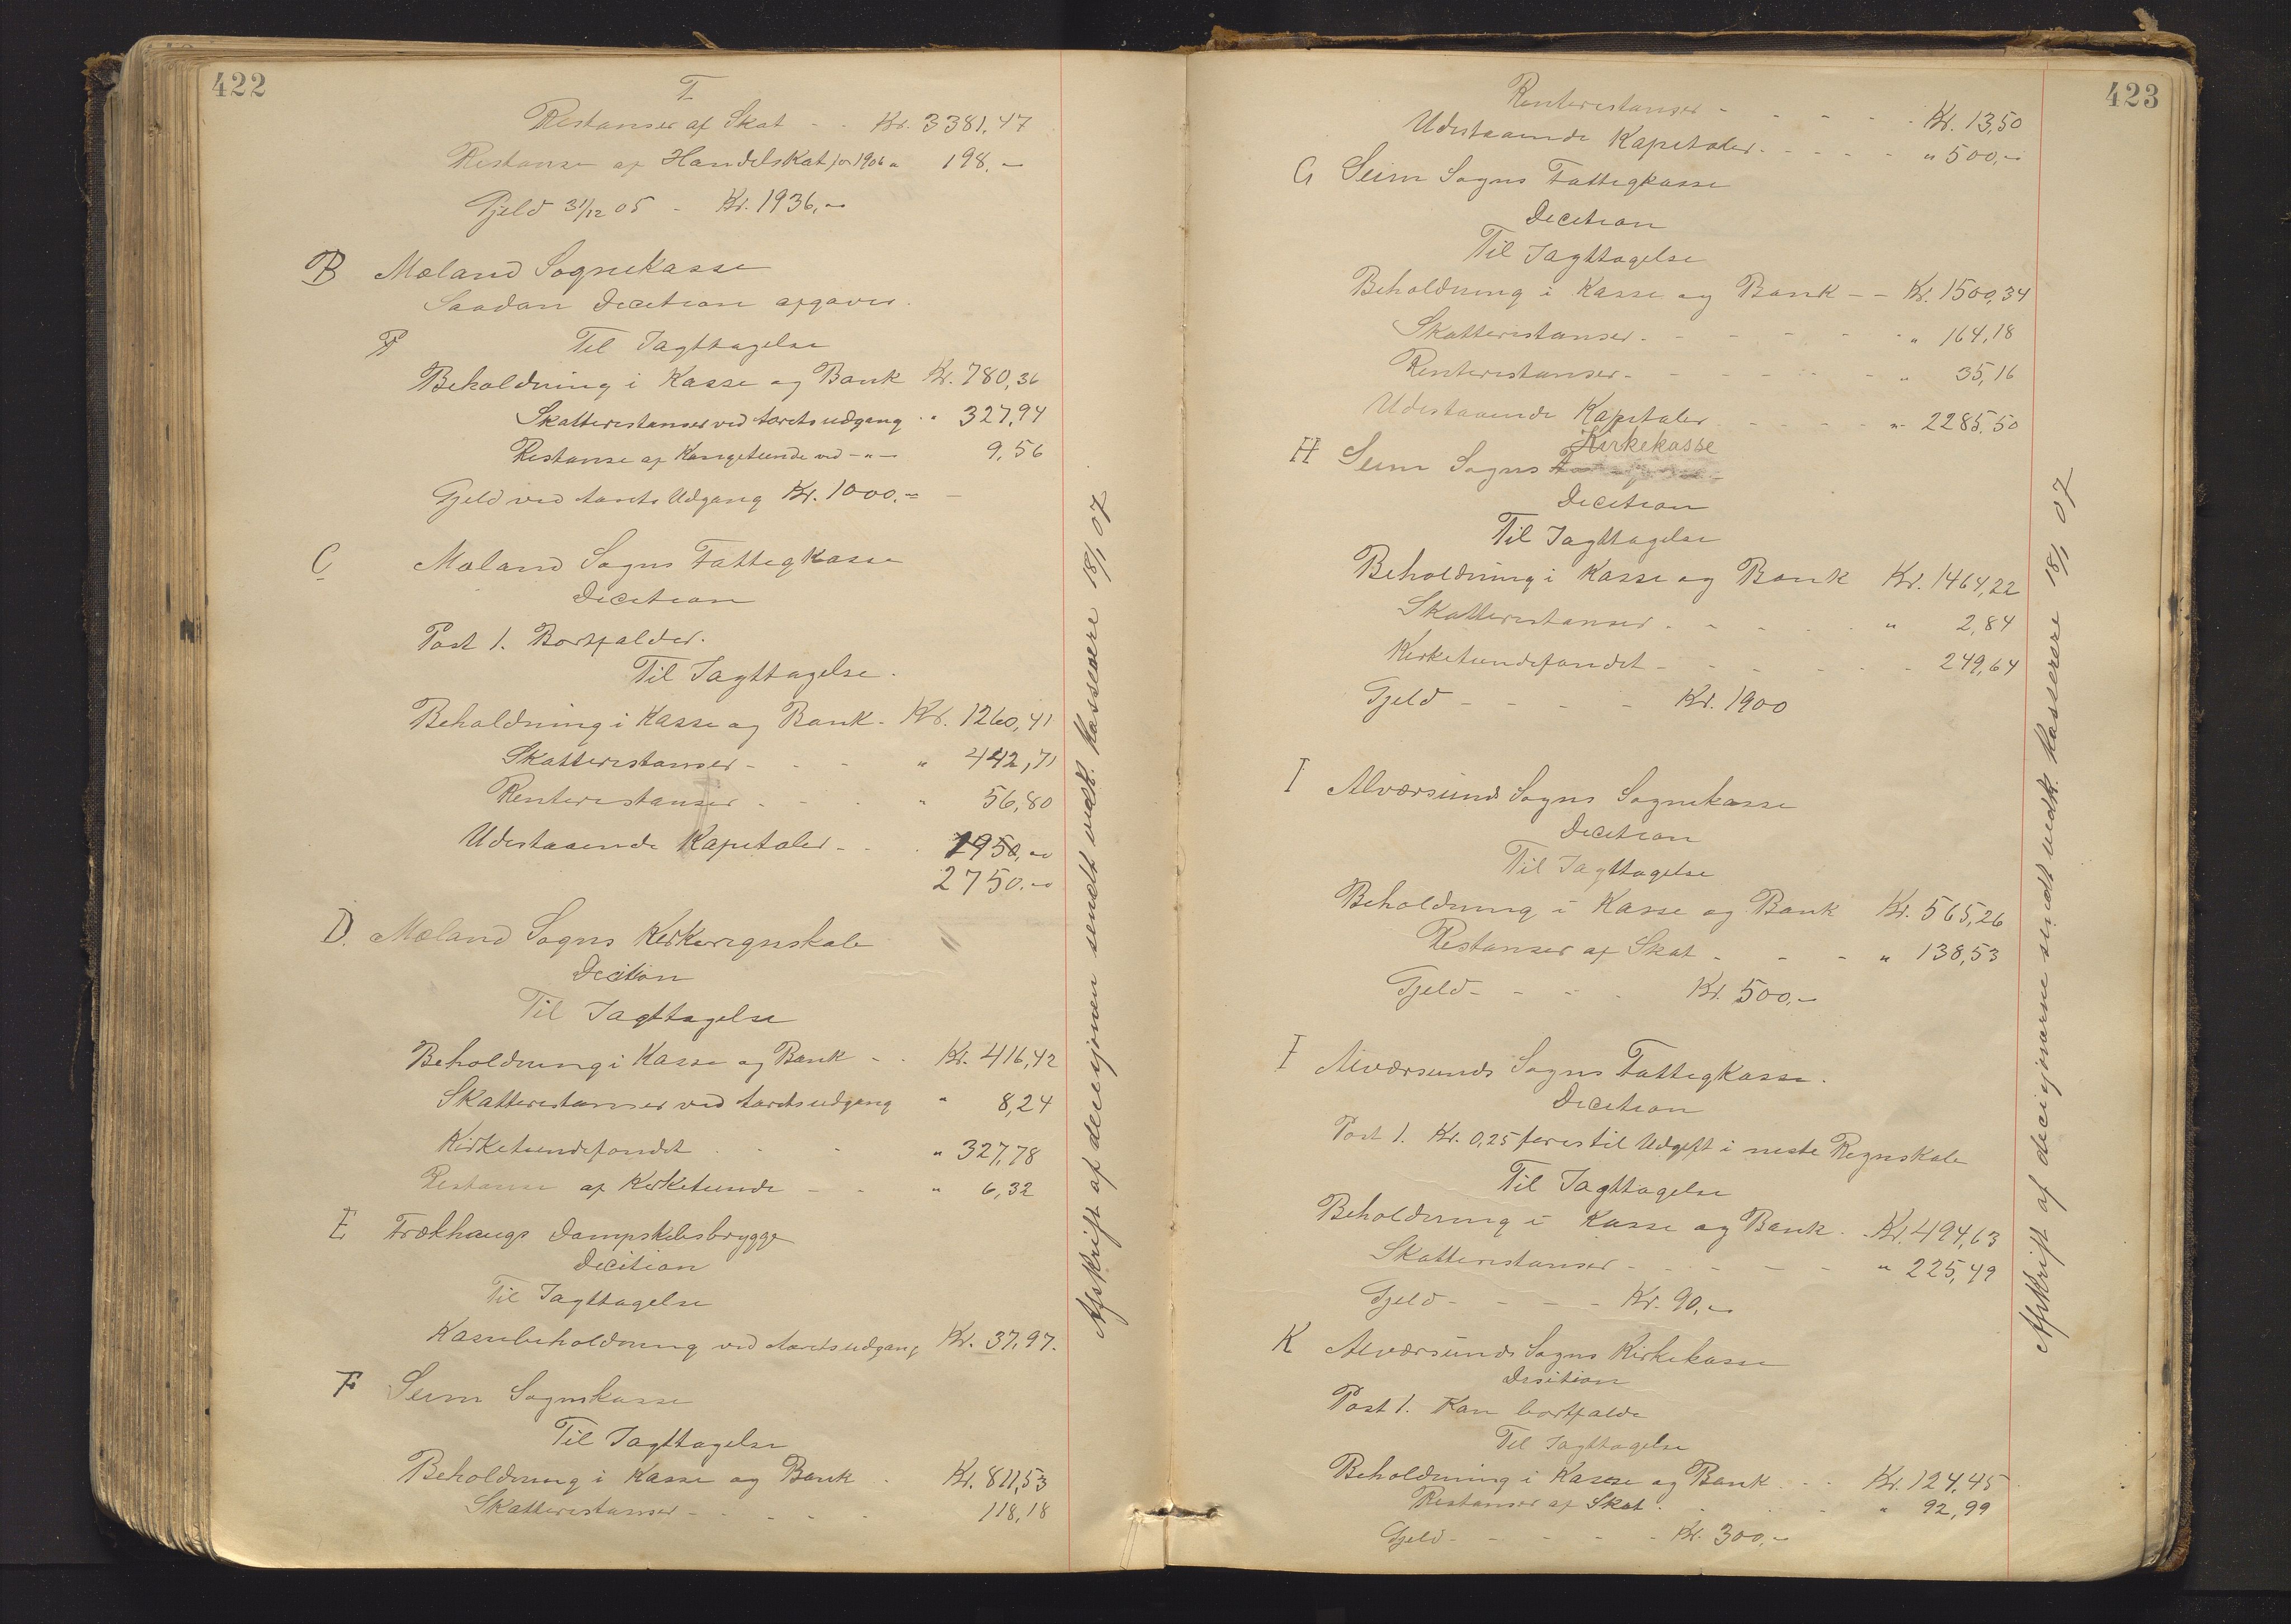 422
T
Restanser af Skat - - Kr. 3381,47
Restanse af Handelskat for 1906 " 198.-
Gjeld 31/12 05 - Kr. 1936,-
B Mæland Sognekasse
Saadan Decition afgaves.
Til Iagttagelse
Beholdning i Kasse og Bank Kr. 780,36
Skatterestanser ved Aarets udgang " 327,94
Restanse af Kongetiende ved -"- 9,56
Gjeld ved Aarets Udgang Kr. 1000.-
C Mæland Sogns Fattigkasse
Decition
Post 1. Bortfalder.
Til Iagttagelse.
Beholdning i Kasse og Bank - Kr. 1260,41
Skatterestanser - - - " 442,71
Renterestanser - - - " 56,80
Udestaaende Kapitaler - - 1950,-
2750.-
D. Mæland Sogns Kirkeregnskab
Decition
Til Iagttagelse
Beholdning i Kasse og Bank - - Kr. 416,42
Skatterestanser ved Aarets udgang " 8,24
Kirketiendefondet - - " 327,78
Restanse af Kirketiende - - " 6,32
E Frækhaugs Dampskibsbrygge
Decition
Til Iagttagelse
Kassebeholdning ved Aarets udgang Kr. 37,97.
F Seim Sognekasse
Til Iagttagelse
Beholdning i Kasse og Bank - Kr. 811,53
Skatterestanser - - - - - 118,18
Afskrift af decisjonen sendt vedk. kasserere 18/1 07
423
Renterestanser - - - - - Kr. 13,50
Udestaaende Kapitaler - - - - - " 500,-
G Seim Sogns Fattigkasse
Decition
Til Iagttagelse
Beholdning i Kasse og Bank - - Kr. 1500,34
Skatterestanser - - - - - " 164,18
Renterestanser - - - - - " 35,16
Udestaaende Kapitaler - - - - - " 2285,50
Kirkekasse
H Seim Sogns
Decition
Til Iagttagelse
Beholdning i Kasse og Bank Kr. 1464,22
Skatterestanser - - - - - " 2,84
Kirketiendefondet - - - - - 249,64
Gjeld - - - - Kr. 1900
I Alværsunds Sogns Sognekasse
Decition
Til Iagttagelse
Beholdning i Kasse og Bank Kr. 565,26
Restanser af Skat - - - " 138,53
Gjeld - - - - Kr. 500,-
I Alværsunds Sogns Fattigkasse.
Decition
Post 1. Kr. 0,25 føres til Udgift i neste Regnskab
Til Iagttagelse
Beholdning i Kasse og Bank - Kr. 494,63
Skatterestanser - - - - - " 225,49
Gjeld - - - - Kr. 90,-
K Alværsunds Sogns Kirkekasse
Desition
Post 1. Kan bortfalde
Til Iagttagelse
Beholdning i Kasse og Bank - - Kr. 124,45
Restanser af Skat - - - - " 92,99
Gjeld - - - - - Kr. 300,-
Afskrift af decisjonerne sendt vedk. kasserere 18/1 07